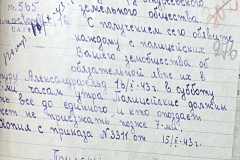 № 565
земельного общества
С получением сего объявите
каждому с полицейских
Вашего земобщества об
обязательной явке их в
Александровку 16/X-43 г. в субботу
часам утра. Полицейские должны
все до единого и кто опоздает
не приезжать позже 7-ми
с приказа № 3311 от 15/X-43 г.